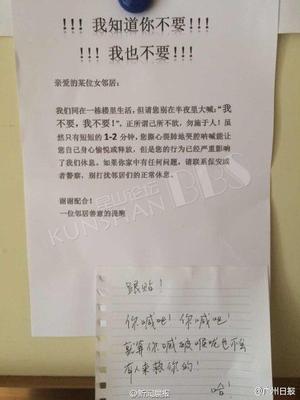 !!! 我知道你不要!!!
!!! 我也不要!!!
亲爱的某位女邻居：
我们同在一栋楼里生活，但请您别在半夜里大喊：“我
不要，我不要!”，正所谓己所不欲，勿施于人！虽
然只有短短的 1-2 分钟，您撕心裂肺地哭腔呐喊能让
您自己身心愉悦或释放，但是您的行为已经严重影响
了我们休息。如果你家中有任何问题，请联系保安或
者警察，别打扰邻居们的正常休息。
谢谢配合！
一位邻居善意的提醒
昆山论坛
KUNSHAN BBS
跟贴！
你喊吧！你喊吧！
就算你喊破喉咙也不会
有人来救你的！
哈！
@新闻晨报
@广州日报